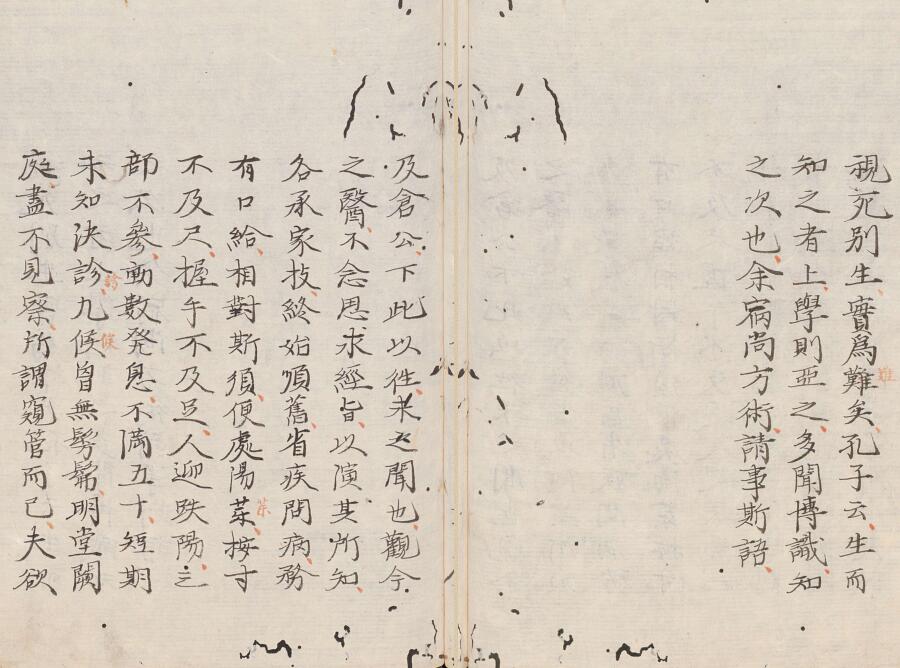 視死別生實為難矣孔子云生而
知之者上學則亞之多聞博識知
之次也余宿尚方術請事斯語
及倉公下此以往未之聞也觀今
之醫不念思求經旨以演其所知
各承家技終始順舊省疾問病務
有口給相對斯須便處陽藥按寸
不及尺握手不及足人迎趺陽三
部不參動數発息不滿五十短期
未知決診九候曽無髣髴明堂闕
庭盡不見察所謂窺管而已夫欲